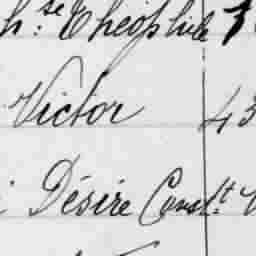 h.se Théophile
Victor 43
Désiré Const.t